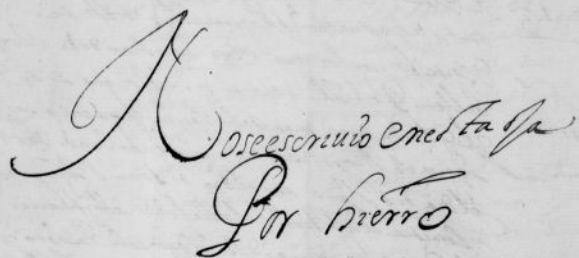 No se escriuio en esta oja
Por hierro